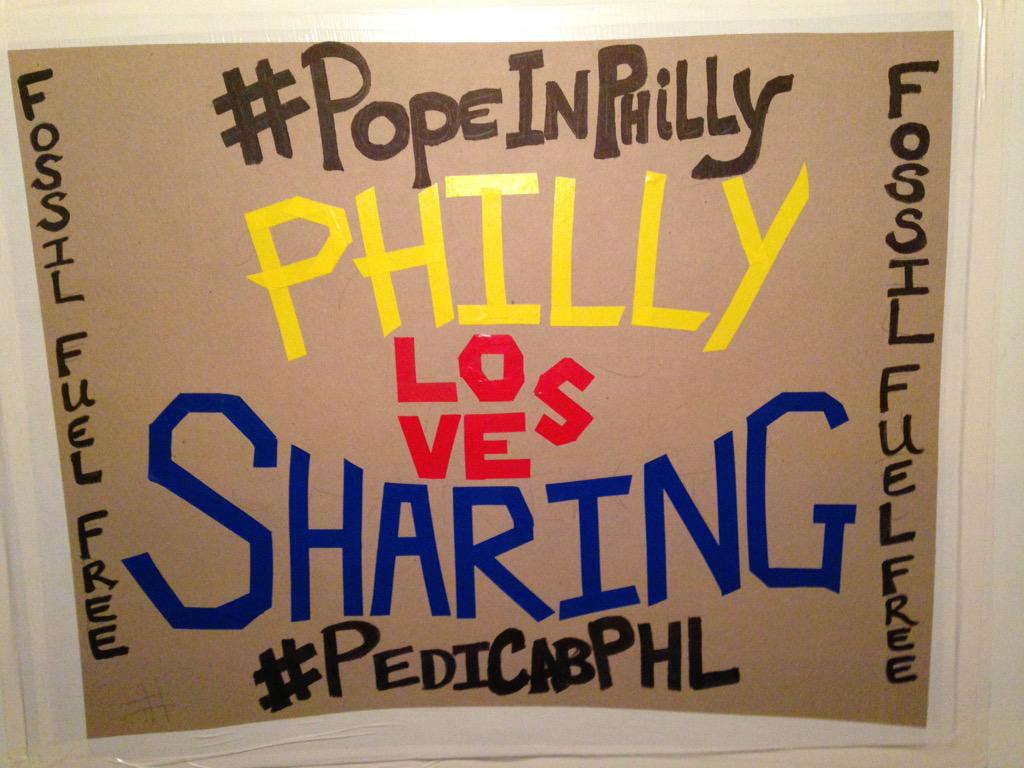 #PopeInPhilly
PHILLY
LOVES
SHARING
#PEDICABPHL
FOSSIL FUEL FREE
FOSSIL FUEL FREE